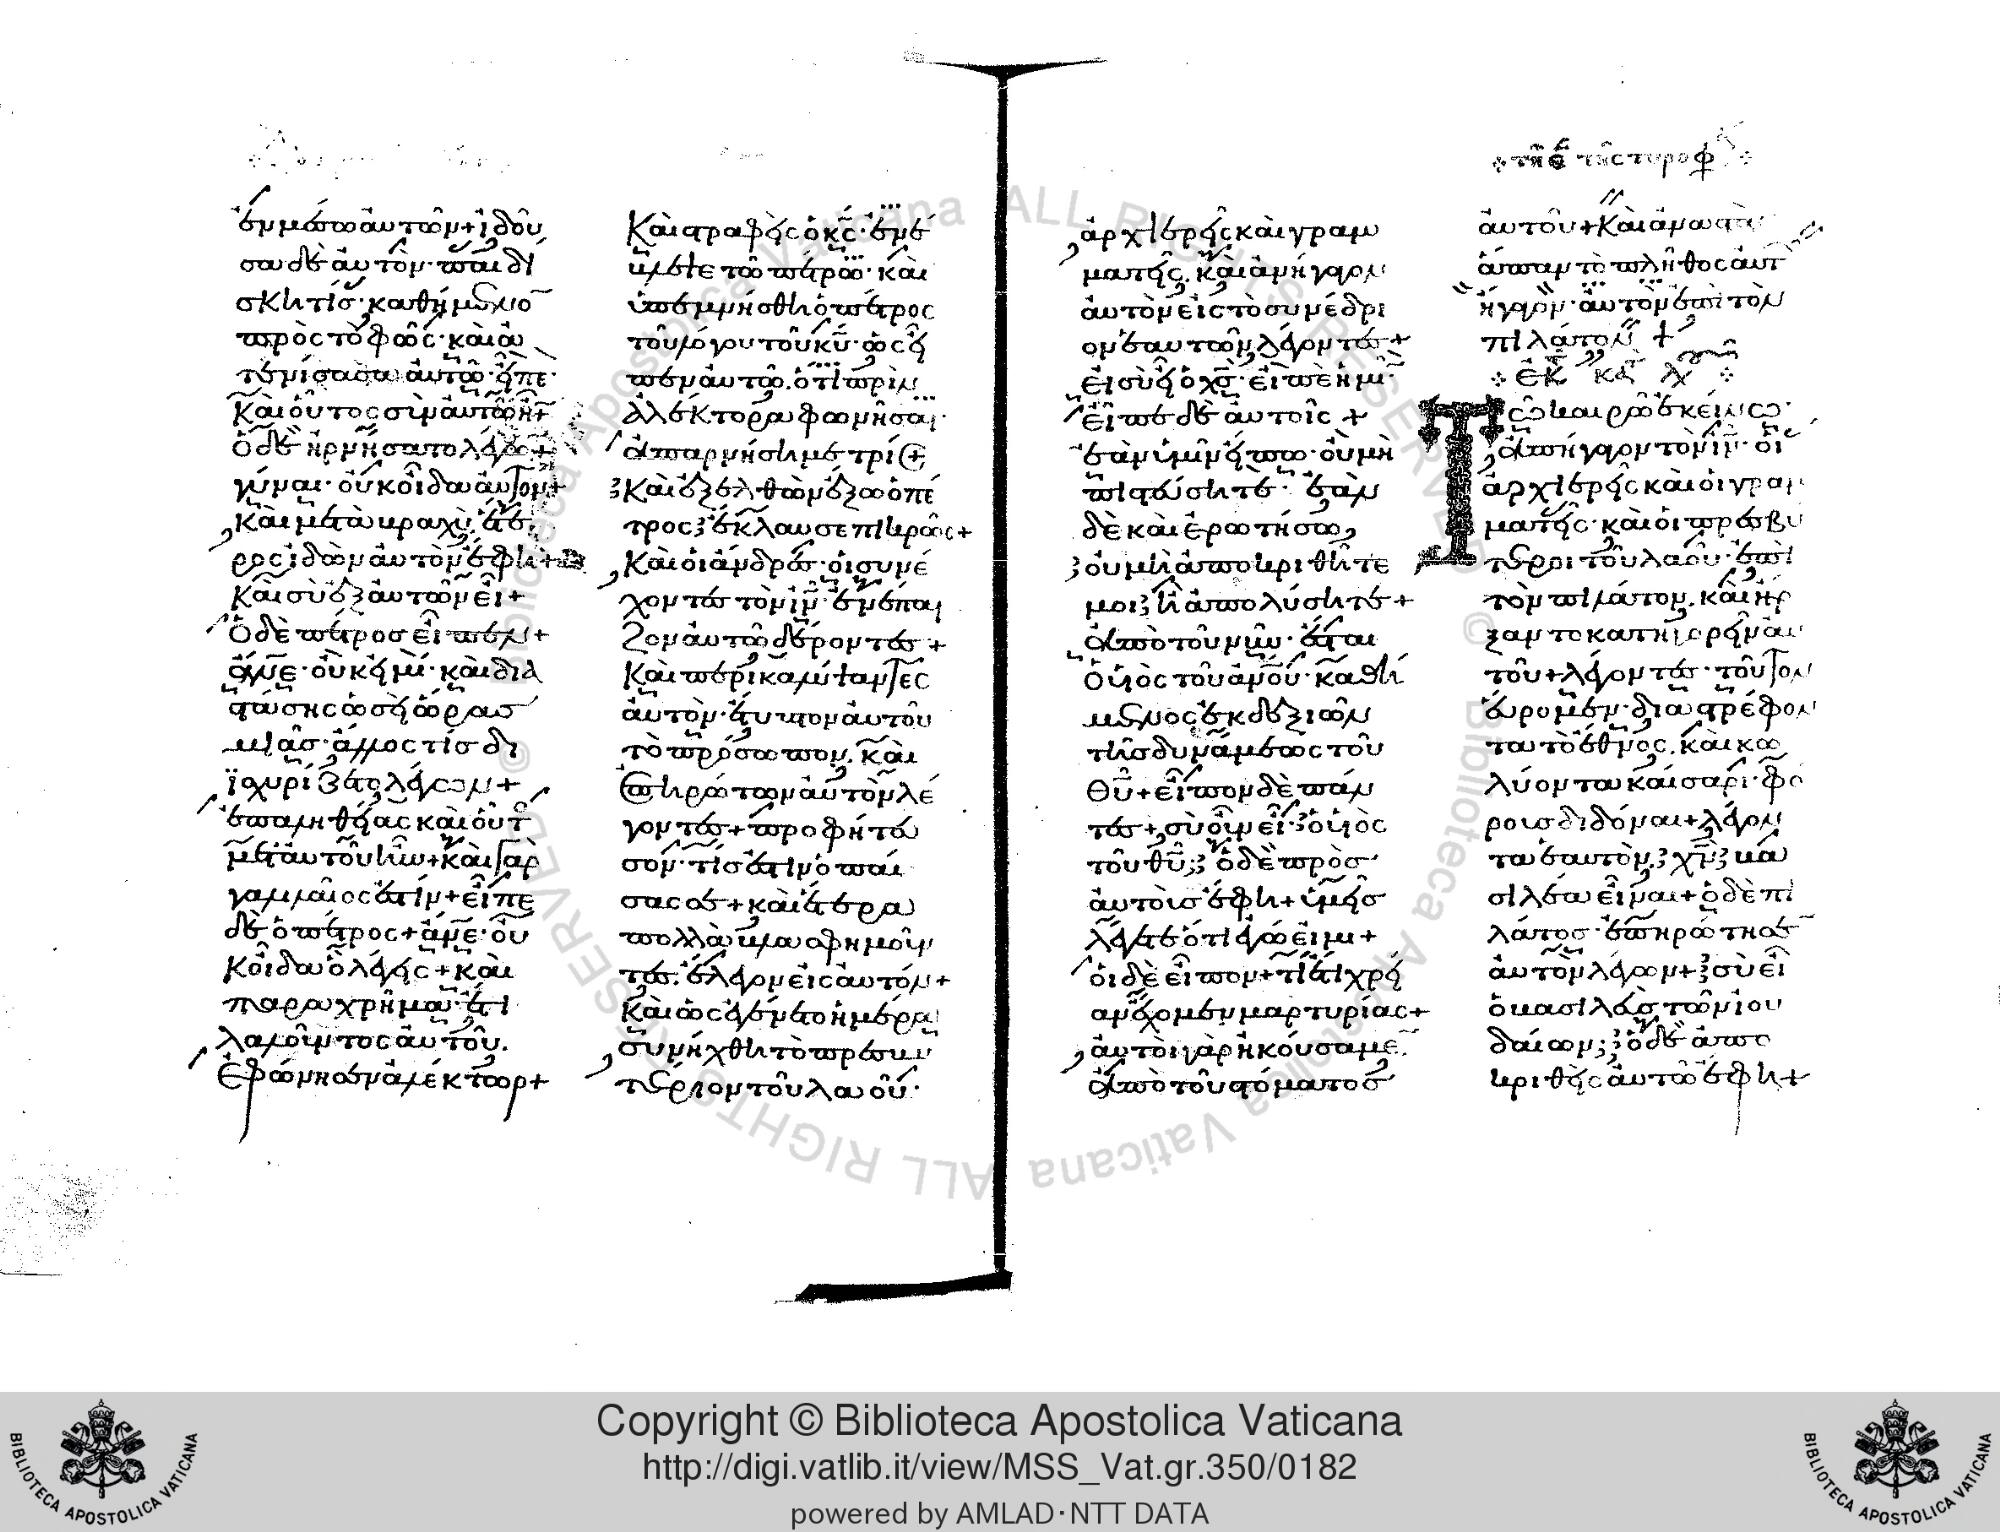 ἐν μέσω αὐτῶν + ἰδοῦ
σα δὲ αὐτὸν · παιδί
σκη τίς · καθήμενο
πρὸς τὸ φῶς · καὶ ἀ
τενίσασα αὐτῶ · εἶπε ·
Καὶ οὗτος σὺν αὐτῶ ἦν +
Ὁ δὲ ἠρνήσατο λέγων +
γύναι · οὐκ οἶδα αὐτον +
Καὶ μετὰ βραχὺ · ἕτε
ρος ἰδὼν αὐτὸν ἔφη +
Καὶ σὺ ἐξ αὐτῶν εἶ +
Ὁ δὲ πέτρος εἶπεν +
ἄνε · οὐκ εἰμὶ · καὶ δια
στάσης ὡσεὶ ὥρας
μιᾶς · ἄλλος τίς δι
ϊσχυρίζετο λέγων +
ἐπ' ἀληθείας καὶ οὗτ
μετ' αὐτοῦ ἦν + καὶ γὰρ
γαλιλαῖος ἐστὶν + εἶπε
δὲ ὁ πέτρος + ἄνε · οὐ
κ οἶδα ὃ λέγεις + καὶ
παραχρῆμα · ἔτι
λαλοῦντος αὐτοῦ ·
Ἐφώνησεν ἀλέκτωρ +
Καὶ στραφεὶς ὁ κς · ἐνέ
βλεψε τῶ πέτρω · καὶ
ὑπεμνήσθη ὁ πέτρος
τοῦ λόγου τοῦ κυ · ὡς εἶ
πεν αὐτῶ · ὅτι πρὶν
ἀλέκτορα φωνῆσαι ·
ἀπαρνήση με τρίς +
Καὶ ἐξελθὼν ἔξω ὁ πέ
τρος ἔκλαυσε πικρῶς +
Καὶ οἱ ἄνδρες · οἱ συνέ
χοντες τὸν ιν · ἐνέπαι
ζον αὐτῶ δέροντες +
Καὶ περικαλύψαντες
αὐτὸν · ἔτυπτον αὐτοῦ
τὸ πρόσωπον · καὶ
ἐπηρώτων αὐτὸν λέ
γοντες + προφήτευ
σον · τίς ἐστὶν ὁ παί
σας σε + καὶ ἕτερα
πολλὰ βλασφημοῦν
τες · ἔλεγον εἰς αὐτόν +
Καὶ ὡς ἐγένετο ἡμέρα
συνήχθη τὸ πρεσβυ
τέριον τοῦ λαοῦ ·
ἀρχιερεῖς καὶ γραμ
ματεῖς · καὶ ἀνήγαγον
αὐτὸν εἰς τὸ συνέδρι
ον ἑαυτῶν λέγοντες +
εἰ σὺ εἶ ὁ χς · εἰπὲ ἡμῖν
εἶπε δὲ αὐτοῖς +
ἐὰν ὑμῖν εἴπω · οὐ μὴ
πιστεύσητε · ἐὰν
δὲ καὶ ἐρωτήσω,
οὐ μὴ ἀποκριθῆτε
μοι ἢ ἀπολύσητε +
Ἀπὸ τοῦ νῦν · ἔσται
ὁ υἱὸς τοῦ ἀνου · καθή
μενος ἐκ δεξιῶν
τῆς δυνάμεως τοῦ
θυ + εἶπον δὲ πάν
τες + σὺ οὖν εἶ ὁ υἱὸς
τοῦ θυ; ὁ δὲ πρὸς
αὐτοὺς ἔφη + ὑμεῖς
λέγετε ὅτι ἐγώ εἰμι +
οἱ δὲ εἶπον + τί ἔτι χρεί
αν ἔχομεν μαρτυρίας +
αὐτοὶ γὰρ ἠκούσαμεν
ἀπὸ τοῦ στόματος
τῆ ε τῆς τυροφ
αὐτοῦ + Καὶ ἀναστὰν
ἅπαν τὸ πλῆθος αὐτ
ἤγαγον · αὐτὸν ἐπὶ τὸν
πιλάτον +
Τῶ καιρῶ ἐκείνω ·
ἀπήγαγον τὸν ιν · οἱ
ἀρχιερεῖς καὶ οἱ γραμ
ματεῖς · καὶ οἱ πρεσβύ
τεροι τοῦ λαοῦ · ἐπὶ
τὸν πιλάτον · καὶ ἤρ
ξαντο κατηγορεῖν αὐ
τοῦ + λέγοντες · τοῦτον
εὕρομεν · διαστρέφον
τα τὸ ἔθνος · καὶ κω
λύοντα καίσαρι · φό
ρους διδόναι + λέγον
τα ἑαυτὸν χν βα
σιλέα εἶναι + ὁ δὲ πι
λάτος · ἐπηρώτησεν
αὐτὸν λέγων + σὺ εἶ
ὁ βασιλεὺς τῶν ἰου
δαίων; ὁ δὲ ἀπο
κριθεὶς αὐτῶ ἔφη +
Copyright © Biblioteca Apostolica Vaticana
http://digi.vatlib.it/view/MSS_Vat.gr.350/0182
powered by AMLAD·NTT DATA
BIBLIOTECA APOSTOLICA VATICANA
BIBLIOTECA APOSTOLICA VATICANA
© Biblioteca Apostolica Vaticana ALL RIGHTS RESERVED
© Biblioteca Apostolica Vaticana ALL RIGHTS RESERVED